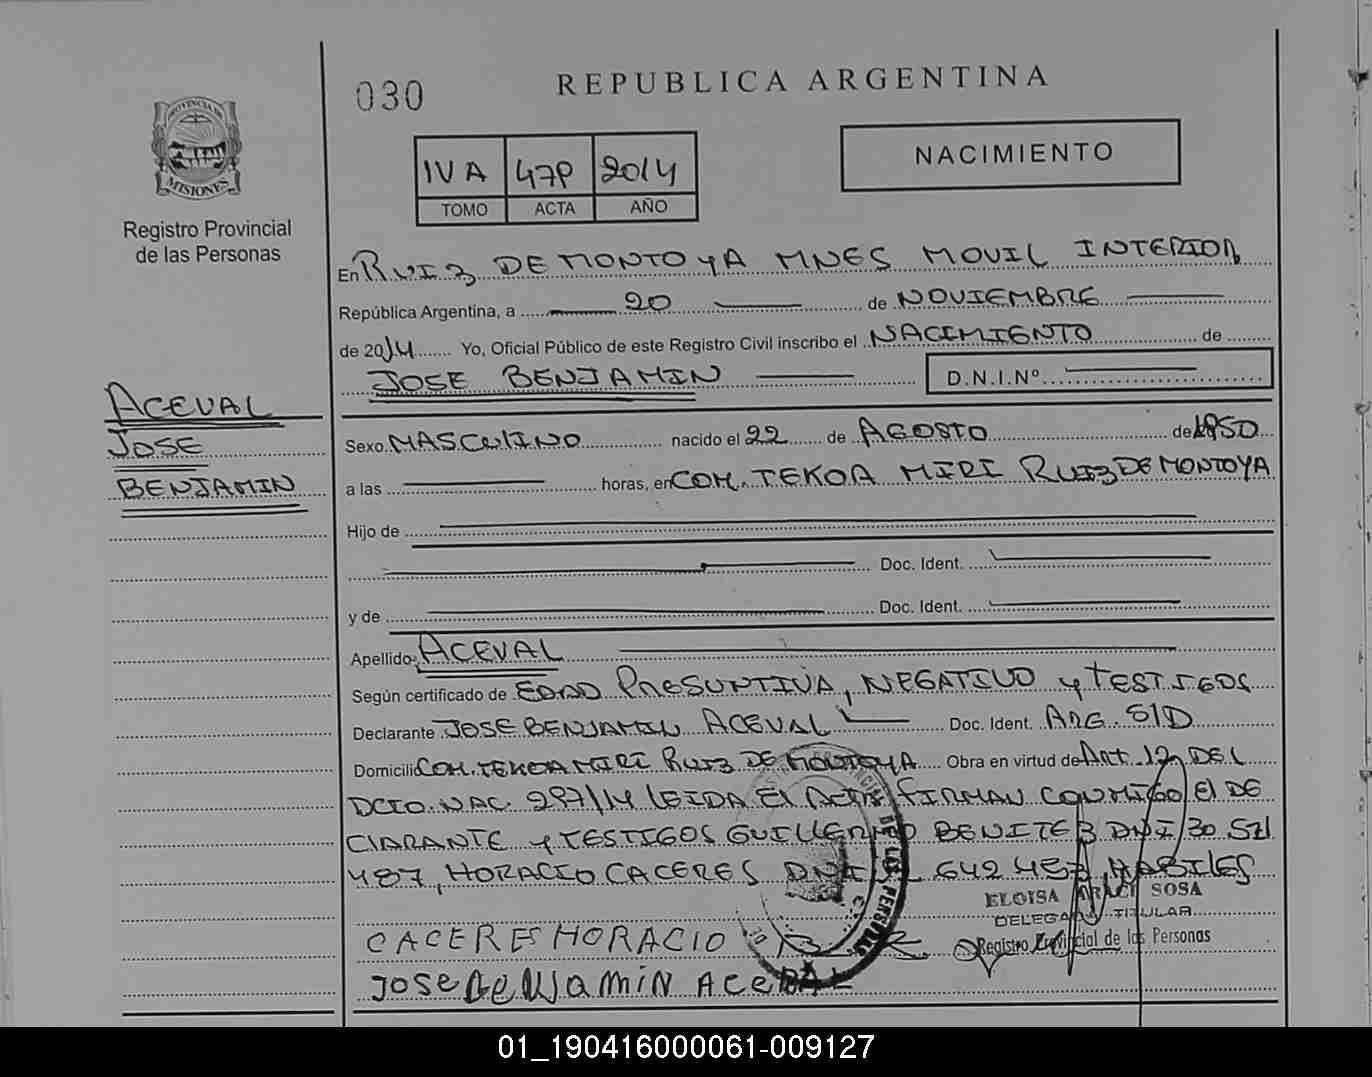 030
REPUBLICA ARGENTINA
PROVINCIA DE
MISIONES
Registro Provincial
de las Personas
IVA 47P 2014
TOMO ACTA AÑO
NACIMIENTO
En RUIZ DE MONTOYA MNES MOVIL INTERIOR
República Argentina, a 20 de NOVIEMBRE
de 2014 Yo, Oficial Público de este Registro Civil inscribo el NACIMIENTO de
JOSE BENJAMIN D.N.I.Nº
ACEVAL
JOSE
BENJAMIN
Sexo MASCULINO nacido el 22 de AGOSTO de 1950
a las horas, en COM. TEKOA MIRI RUIZ DE MONTOYA
Hijo de
Doc. Ident.
y de Doc. Ident.
Apellido ACEVAL
Según certificado de EDAD PRESUNTIVA, NEGATIVO Y TESTIGOS
Declarante JOSE BENJAMIN ACEVAL Doc. Ident. ARG. S/D
Domicilio COM. TEKOA MIRI RUIZ DE MONTOYA Obra en virtud de Art. 12 DEL
DCTO. NAC. 297/14 LEIDA El Acta FIRMAN CONMIGO El DE
CLARANTE Y TESTIGOS GUILLERMO BENITEZ DNI 30 521
487, HORACIO CACERES DNI 642 487, HABILES
ELOISA ARACI SOSA
DELEGADA TITULAR
Registro Provincial de las Personas
CACERES HORACIO
JOSE BENJAMIN ACEBAL
DE LAS PERSONAS
01_190416000061-009127